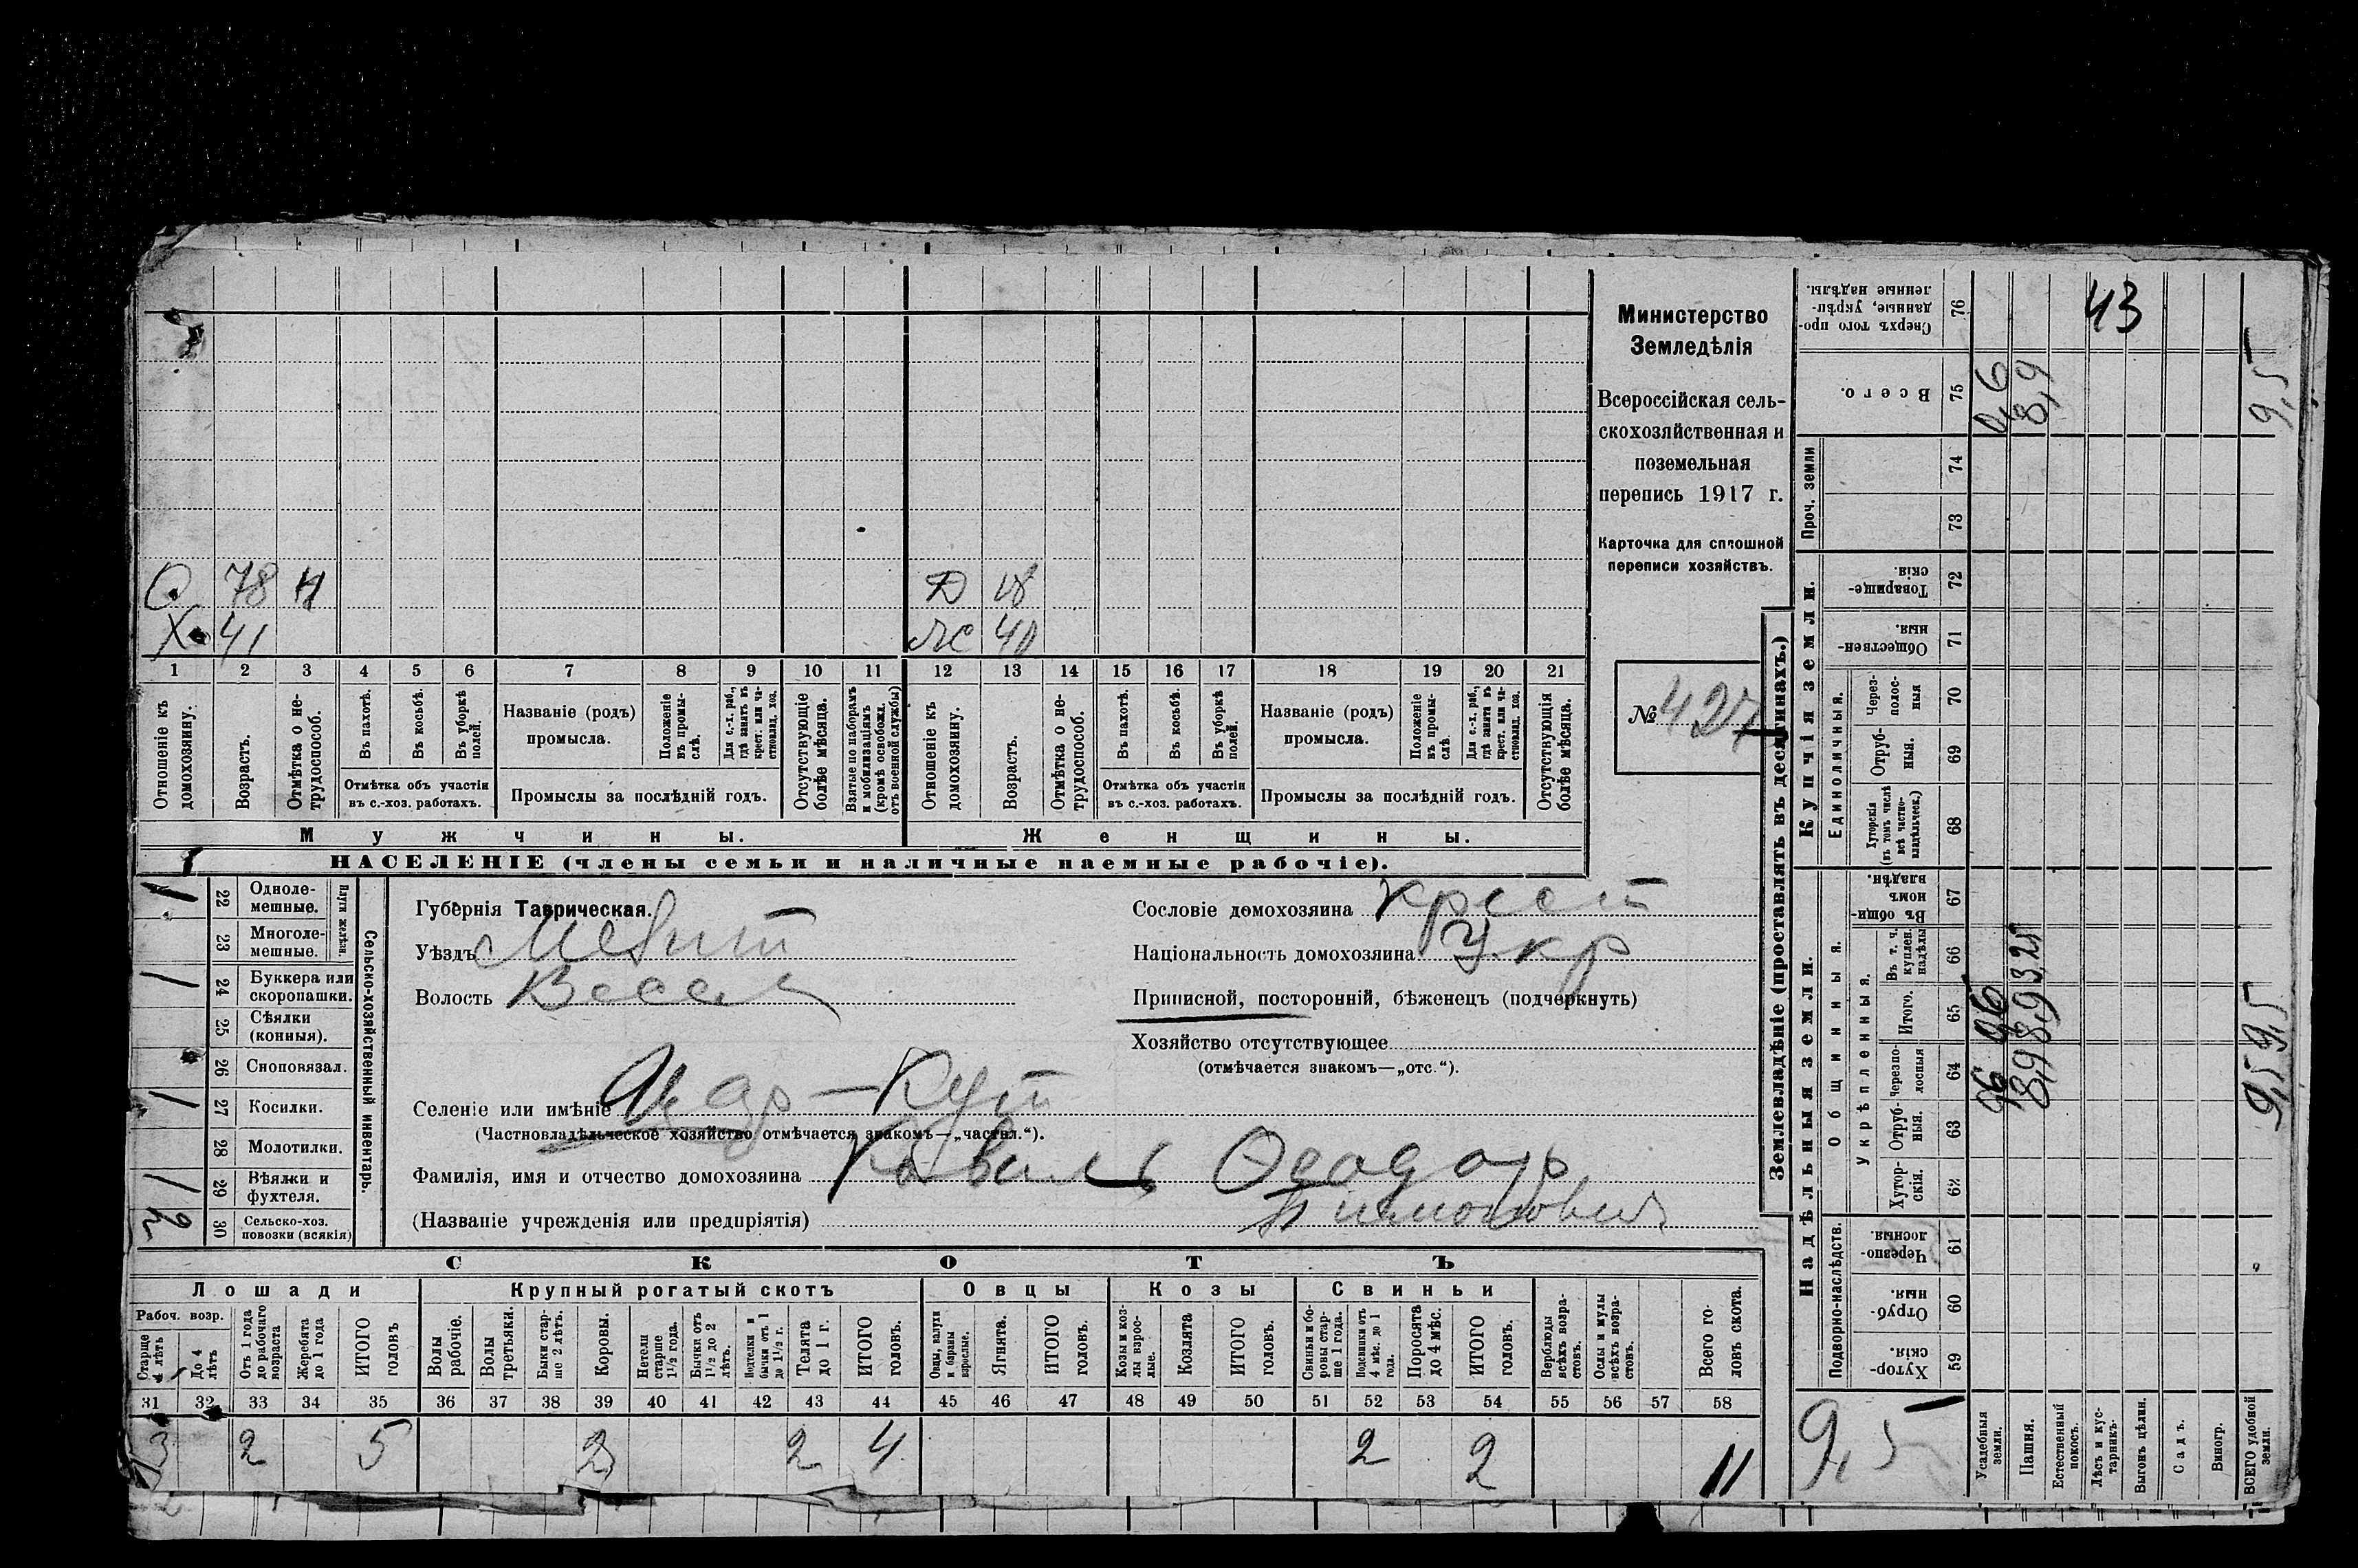 О 78 Н Д 18
Х 41 Ж 40
1 2 3 4 5 6 7 8 9 10 11 12 13 14 15 16 17 18 19 20 21
Отношеніе къ домохозяину.
Возрастъ.
Отмѣтка о не-трудоспособ.
Въ пахотѣ.
Въ косьбѣ.
Въ уборкѣ полей.
Отмѣтка объ участіи
въ с.-хоз. работахъ.
Названіе (родъ)
промысла.
Положеніе въ промы-слѣ.
Для с.-х. раб., гдѣ занятъ въ крест. или ча-стновлад. хоз.
Промыслы за послѣдній годъ.
Отсутствующіе болѣе мѣсяца.
Взятые по наборамъ и мобилизаціямъ (кромѣ освобожд. отъ военной службы)
Отношеніе къ домохозяину.
Возрастъ.
Отмѣтка о не-трудоспособ.
Въ пахотѣ.
Въ косьбѣ.
Въ уборкѣ полей.
Отмѣтка объ участіи
въ с.-хоз. работахъ.
Названіе (родъ)
промысла.
Положеніе въ промы-слѣ.
Для с.-х. раб., гдѣ занята въ крест. или ча-стновлад. хоз.
Промыслы за послѣдній годъ.
Отсутствующія болѣе мѣсяца.
Мужчины. Женщины.
НАСЕЛЕНІЕ (члены семьи и наличные наемные рабочіе).
Министерство
Земледѣлія
Всероссійская сель-
скохозяйственная и
поземельная
перепись 1917 г.
Карточка для сплошной
переписи хозяйствъ.
№ 427
Сельско-хозяйственный инвентарь.
Плуги желѣзн.
1 22 Одноле-мешные.
23 Многоле-мешные.
1 24 Буккера или скоропашки.
25 Сѣялки (конныя).
26 Сноповязал.
1 27 Косилки.
28 Молотилки.
1 29 Вѣялки и фухтеля.
2 30 Сельско-хоз. повозки (всякія)
Губернія Таврическая.
Уѣздъ Мелит
Волость Весел
Селеніе или имѣніе
(Частновладѣльческое хозяйство отмѣчается знакомъ—„частвл.“).
Фамилія, имя и отчество домохозяина
(Названіе учрежденія или предпріятія)
Сословіе домохозяина крест
Національность домохозяина Укр
Приписной, посторонній, бѣженецъ (подчеркнуть)
Хозяйство отсутствующее
(отмѣчается знакомъ—„отс.“).
СКОТЪ
Лошади Крупный рогатый скотъ Овцы Козы Свиньи
Рабоч. возр.
Старше 4 лѣтъ
До 4 лѣтъ
Отъ 1 года до рабочаго возраста
Жеребята до 1 года
ИТОГО головъ
Волы рабочіе.
Волы третьяки.
Быки стар-ше 2 лѣтъ.
Коровы.
Нетели старше 1½ года.
Бычки отъ 1½ до 2 лѣтъ.
Подтелки и бычки отъ 1 до 1½ г.
Телята до 1 г.
ИТОГО головъ.
Овцы, валухи и бараны взрослые.
Ягнята.
ИТОГО головъ.
Козы и коз-лы взрос-лые.
Козлята
ИТОГО головъ.
Свиньи и бо-ровы стар-ше 1 года.
Подсвинки отъ 4 мѣс. до 1 года.
Поросята до 4 мѣс.
ИТОГО головъ.
Верблюды всѣхъ возра-стовъ.
Ослы и мулы всѣхъ возра-стовъ.
Всего го-ловъ скота.
31 32 33 34 35 36 37 38 39 40 41 42 43 44 45 46 47 48 49 50 51 52 53 54 55 56 57 58
3 2 5 2 2 4 2 2 11
Землевладѣніе (проставлять въ десятинахъ.)
Надѣльныя земли.
Купчія земли.
Проч. земли
Подворно-наслѣдств.
Общинныя.
Укрѣпленныя.
Единоличныя.
59 Хутор-скія.
60 Отруб-ныя.
61 Черезпо-лосныя.
62 Хутор-скія.
63 Отруб-ныя.
64 Черезпо-лосныя
65 Итого.
66 Въ т. ч. куплен. надѣлы
67 Въ общи-номъ владѣн.
68 Хуторскія (въ томъ числѣ всѣ частно-владѣльческ.)
69 Отруб-ныя.
70 Через-полос-ныя
71 Обществен-ныя.
72 Товарище-скія.
73
74
75 Всего.
76 Сверхъ того про-данные, укрѣп-ленные надѣлы.
43
Усадебныя земли. 0,6
Пашня. 8,9 8,9 8,9
Естественный покосъ.
Лѣсъ и кус-тарникъ.
Выгонъ цѣлин.
Садъ.
Виногр.
ВСЕГО удобной земли. 9,5 9,5 9,5
9,5